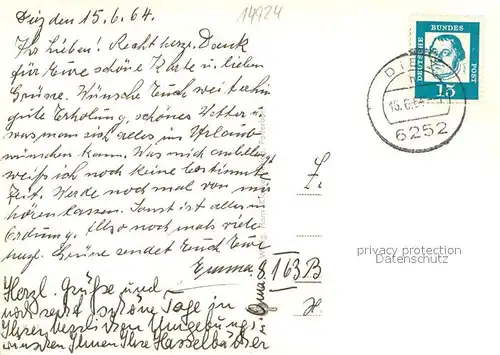 Diez den 15.6.64.
14724
Ihr Lieben! Recht herz. Dank
für Eure schöne Karte u. lieben
Grüsse. Wünsche Euch weiterhin
gute Erholung, schönes Wetter u.
was man sich alles im Urlaub
wünschen kann. Was mich anbelangt
weiß ich noch keine bestimmte
Zeit. Werde noch mal von mir
hören lassen. Sonst ist alles in
Ordnung. Also noch mals viele
Grüsse sendet Euch Eure
Emma.
Herzl. Grüße und
noch recht schöne Tage in
Ihrer Umgebung
wünschen Ihnen Ihre
163 B
DEUTSCHE
BUNDES
POST
15
15.6.64
6252
privacy protection
Datenschutz